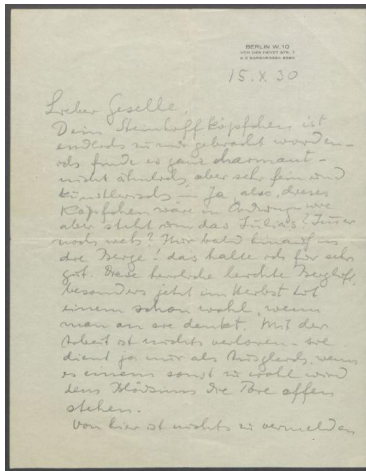 BERLIN W. 10
VON DER HEYDT STR. 7
15.X.30
Lieber Geselle,
Dein Steinhoff Köpfchen ist
endlich zu mir gebracht worden –
ich finde es ganz charmant –
nicht ähnlich, aber sehr fein und
künstlerisch. – Ja also, dieses
Köpfchen wäre in Ordnung, wie
aber steht um das Julia's? Immer
noch weh? Nur bald hinauf in
die Berge! das halte ich für sehr
gut. Diese herrliche leichte Bergluft,
besonders jetzt im Herbst tut
einem schon wohl, wenn
man an sie denkt. Mit der
Arbeit ist nichts verloren – sie
dient ja nur als Ausgleich, wenn
es einem sonst zu wohl wird
dem Blödsinn die Tore offen
stehen.
Von hier ist nichts zu vermelden